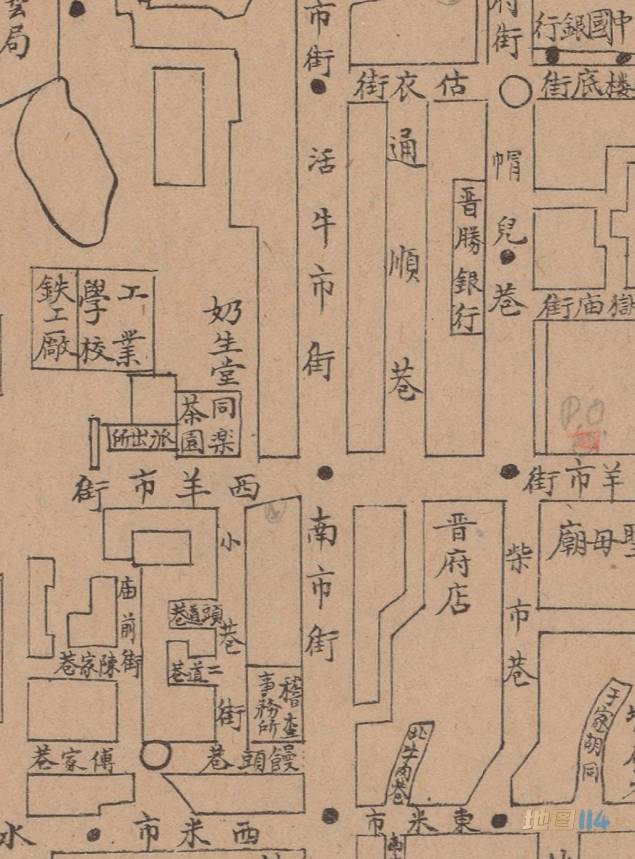 局
市街
府街
中國銀行
估衣街
楼底街
活牛市街
通順巷
帽兒巷
晋勝銀行
嶽庙街
工業學校
鉄工厰
奶生堂
同楽茶園
派出所
P.O
西羊市街
羊市街
南市街
小巷街
頭道巷
二道巷
庙前街
陳家巷
傅家巷
饅頭巷
稽查事務所
晋府店
柴市巷
聖母廟
于家胡同
北牛肉巷
西米市
東米市
水
南
地图114